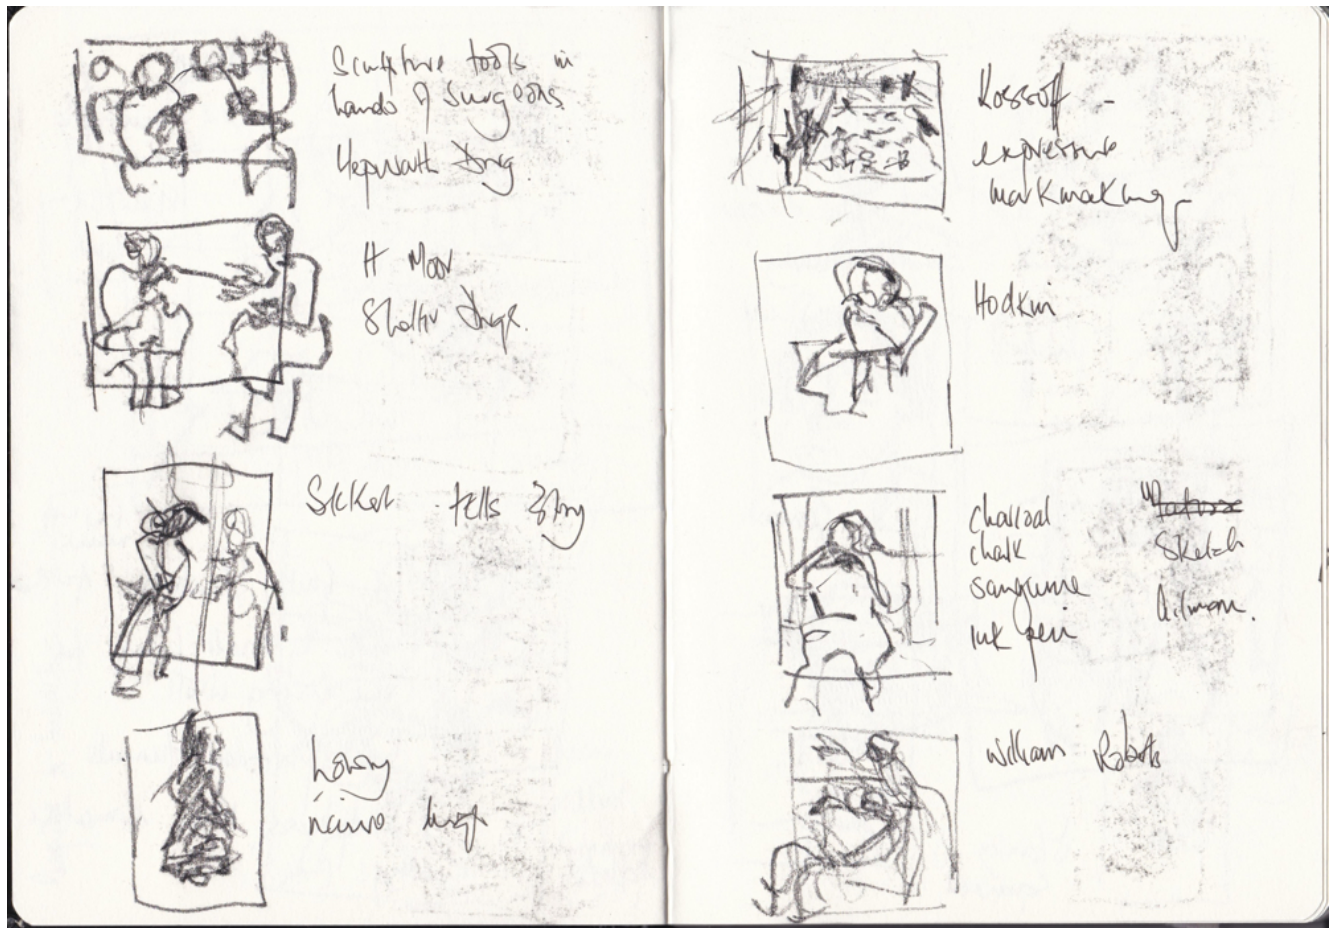 Sculpture tools in
hands of surgeons
Hepworth drwg.
H Moor
Shelter drwgs.
Sickert tells story
Lowry
naive
Kossoff -
expressive
markmaking
Hodkin
charcoal
chalk
sanguine
ink pen
Sketch
Gilman.
William Roberts